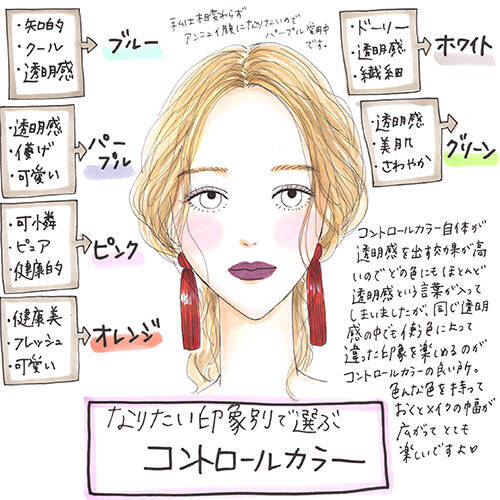 ・知的
・クール
・透明感
ブルー
私は相変わらず
アンニュイ顔になりたいので
パープル愛用中
です。
・ドーリー
・透明感
・繊細
ホワイト
・透明感
・儚げ
・可愛い
パー
プル
・透明感
・美肌
・さわやか
グリーン
・可憐
・ピュア
・健康的
ピンク
・健康美
・フレッシュ
・可愛い
オレンジ
コントロールカラー自体が
透明感を出す効果が高
いのでどの色にもほとんど
透明感という言葉が入って
しまいましたが、同じ透明
感の中でも使う色によって
違った印象を楽しめるのが
コントロールカラーの良い所。
色んな色を持って
おくとメイクの幅が
広がってとても
楽しいですよ♡
なりたい印象別で選ぶ
コントロールカラー